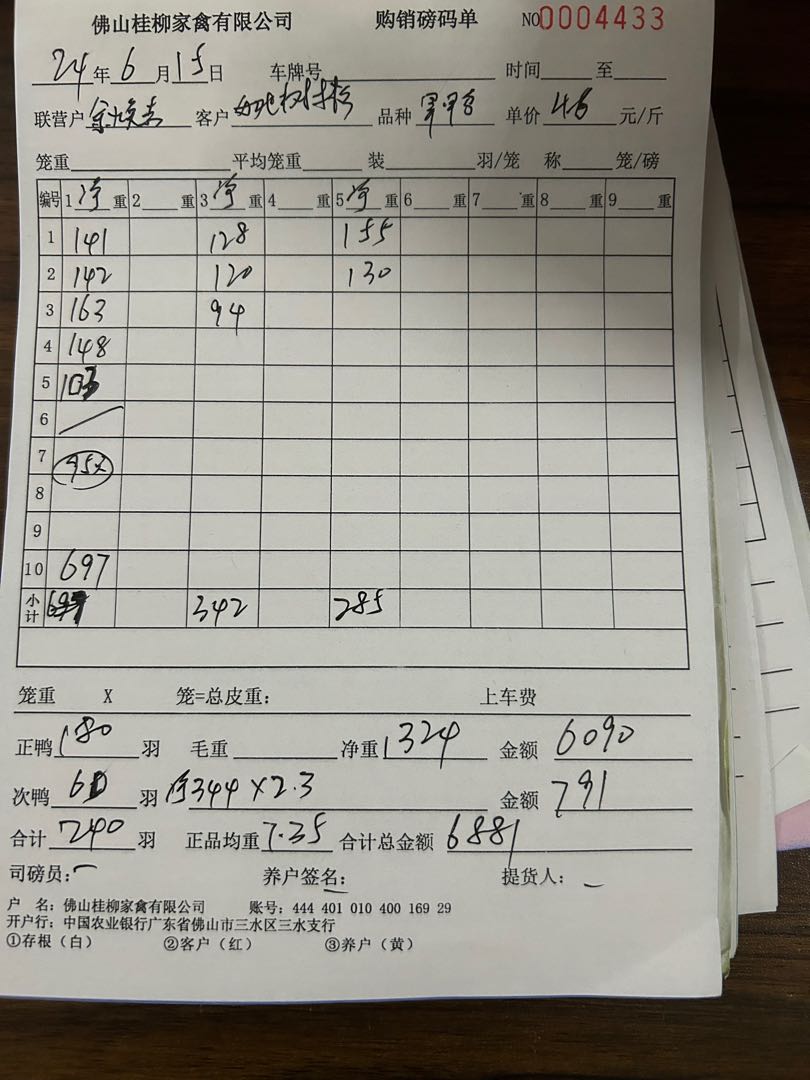 佛山桂柳家禽有限公司 购销磅码单 NO0004433
24年6月15日 车牌号 时间 至
联营户 客户 品种 单价4.6元/斤
笼重 平均笼重 装 羽/笼 称 笼/磅
编号 1净重 2重 3净重 4重 5净重 6重 7重 8重 9重
1 141 128 155
2 142 120 130
3 163 94
4 148
5 103
6
7 95x
8
9
10 697
小计 342 285
笼重 X 笼=总皮重: 上车费
正鸭180羽 毛重 净重1324 金额6090
次鸭60羽 净344×2.3 金额791
合计240羽 正品均重7.35 合计总金额6881
司磅员: 养户签名: 提货人:
户 名: 佛山桂柳家禽有限公司 账号: 444 401 010 400 169 29
开户行: 中国农业银行广东省佛山市三水区三水支行
①存根(白) ②客户(红) ③养户(黄)